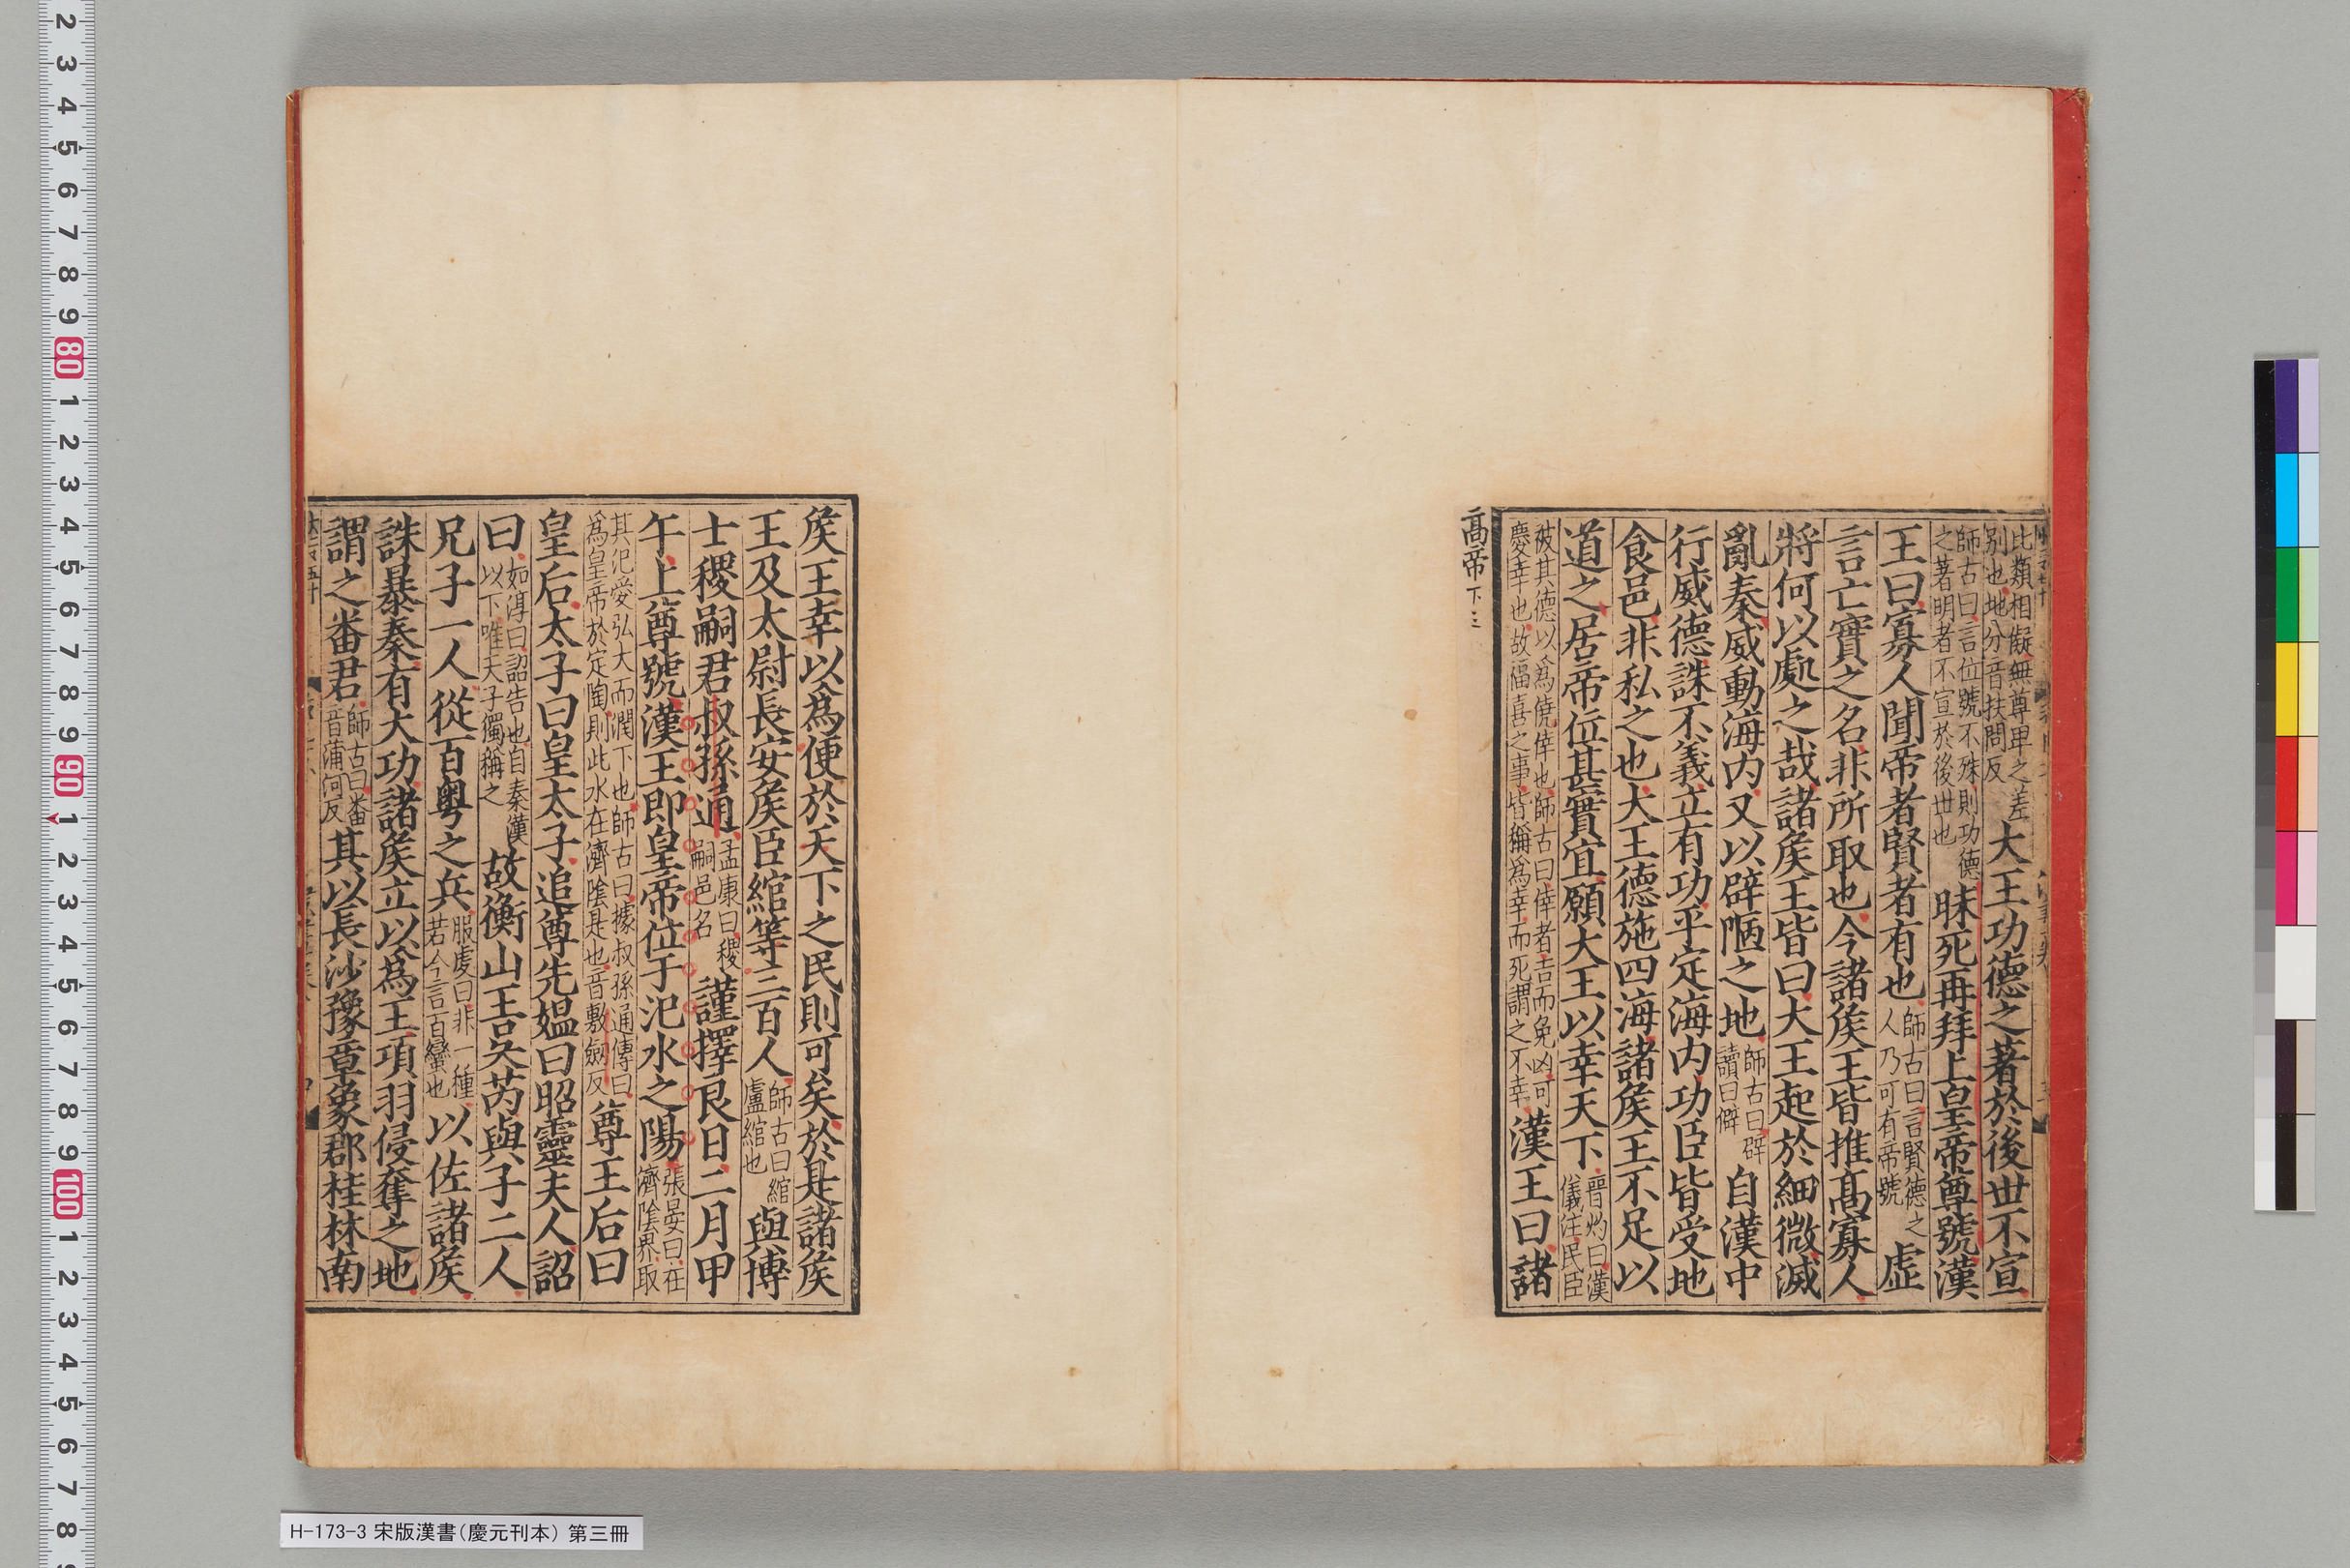 比類相儗無尊卑之差別也地分音扶問反大王功德之著於後世不宣
師古曰言位號不殊則功德之著明者不宣於後世也昧死再拜上皇帝尊號漢
王曰寡人聞帝者賢者有也師古曰言賢德之人乃可有帝號虛
言亡實之名非所取也今諸侯王皆推高寡人
將何以處之哉諸侯王皆曰大王起於細微滅
亂秦威動海内又以辟陋之地師古曰辟讀曰僻自漢中
行威德誅不義立有功平定海内功臣皆受地
食邑非私之也大王德施四海諸侯王不足以
道之居帝位甚實宜願大王以幸天下晉灼曰漢儀注民臣
被其德以爲僥倖也師古曰倖者吉而免凶可慶幸也故福喜之事皆稱爲幸而死謂之不幸漢王曰諸
高帝下三
侯王幸以爲便於天下之民則可矣於是諸侯
王及太尉長安侯臣綰等三百人師古曰綰盧綰也與博
士稷嗣君叔孫通孟康曰稷嗣邑名謹擇良日二月甲
午上尊號漢王即皇帝位于汜水之陽張晏曰在濟陰界取
其汜愛弘大而潤下也師古曰據叔孫通傳曰爲皇帝於定陶則此水在濟陰是也音敷劒反尊王后曰
皇后太子曰皇太子追尊先媼曰昭靈夫人詔
曰如淳曰詔告也自秦漢以下唯天子獨稱之故衡山王吳芮與子二人
兄子一人從百粵之兵服虔曰非一種若今言百蠻也以佐諸侯
誅暴秦有大功諸侯立以爲王項羽侵奪之地
謂之番君師古曰番音蒲何反其以長沙豫章象郡桂林南
2 3 4 5 6 7 8 9 80 1 2 3 4 5 6 7 8 9 90 1 2 3 4 5 6 7 8 9 100 1 2 3 4 5 6 7 8
H-173-3 宋版漢書(慶元刊本) 第三冊